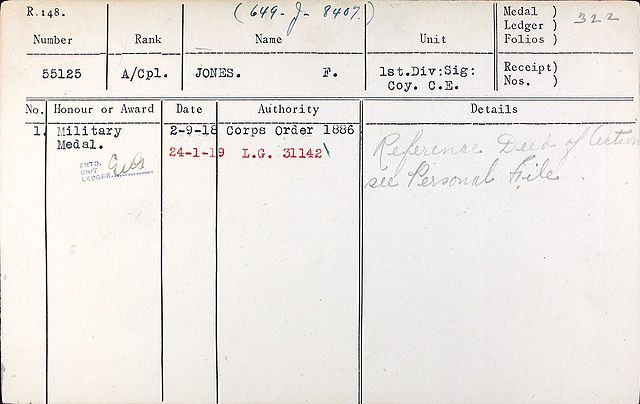 R.148.
(649-J-8407.)
Medal )
Ledger )
Folios )
322
Number Rank Name Unit
55125 A/Cpl. JONES. F. 1st.Div:Sig:
Coy. C.E.
Receipt)
Nos. )
No. Honour or Award Date Authority Details
1. Military 2-9-18 Corps Order 1886
Medal.
24-1-19 L.G. 31142
ENTD.
UNIT
LEDGER
Reference Deed of Action
see Personal File